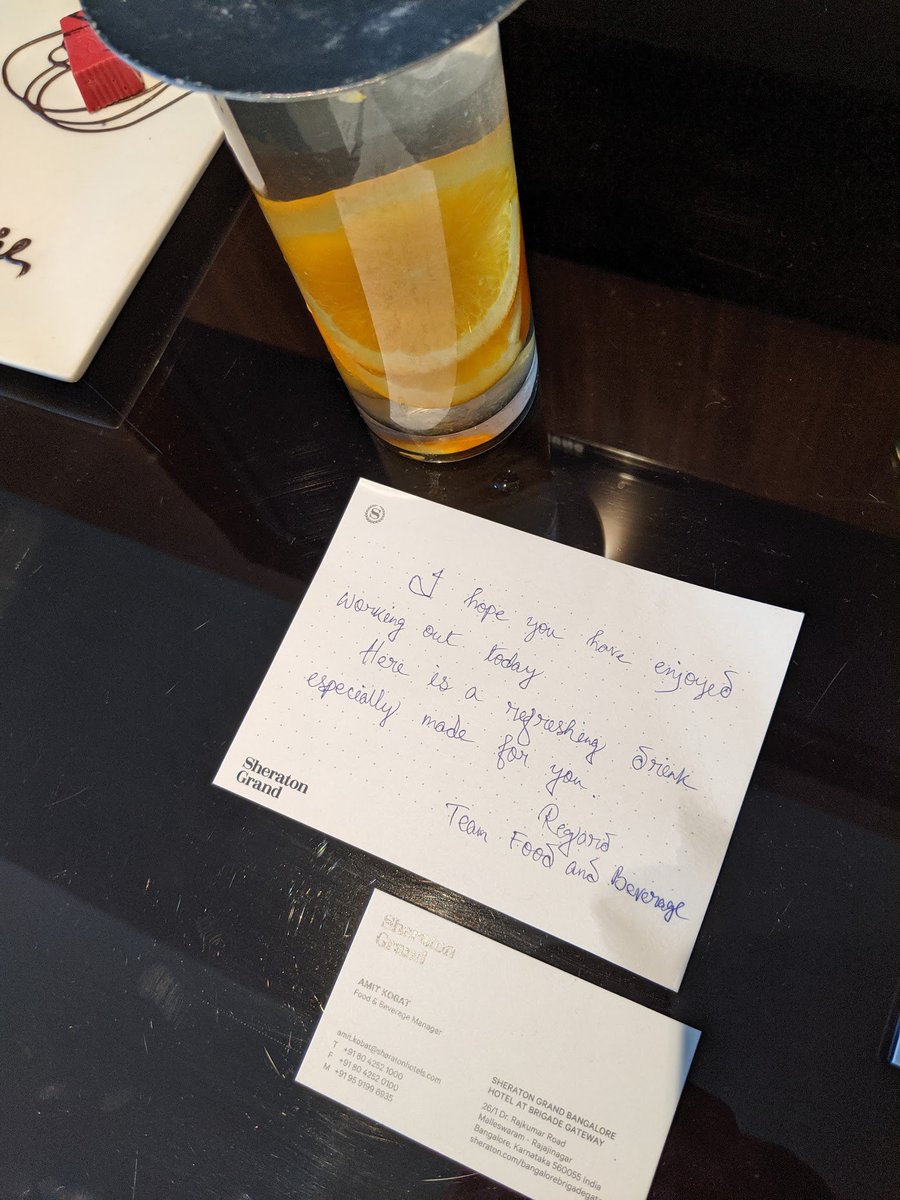 S
I hope you have enjoyed
working out today
Here is a refreshing drink
especially made for you.
Regard
Team Food and Beverage
Sheraton
Grand
Sheraton
Grand
AMIT KOBAT
Food & Beverage Manager
amit.kobat@sheratonhotels.com
T +91 80 4252 1000
F +91 80 4252 0100
M +91 95 9199 6935
SHERATON GRAND BANGALORE
HOTEL AT BRIGADE GATEWAY
26/1 Dr. Rajkumar Road
Malleswaram - Rajajinagar
Bangalore, Karnataka 560055 India
sheraton.com/bangalorebrigadegat